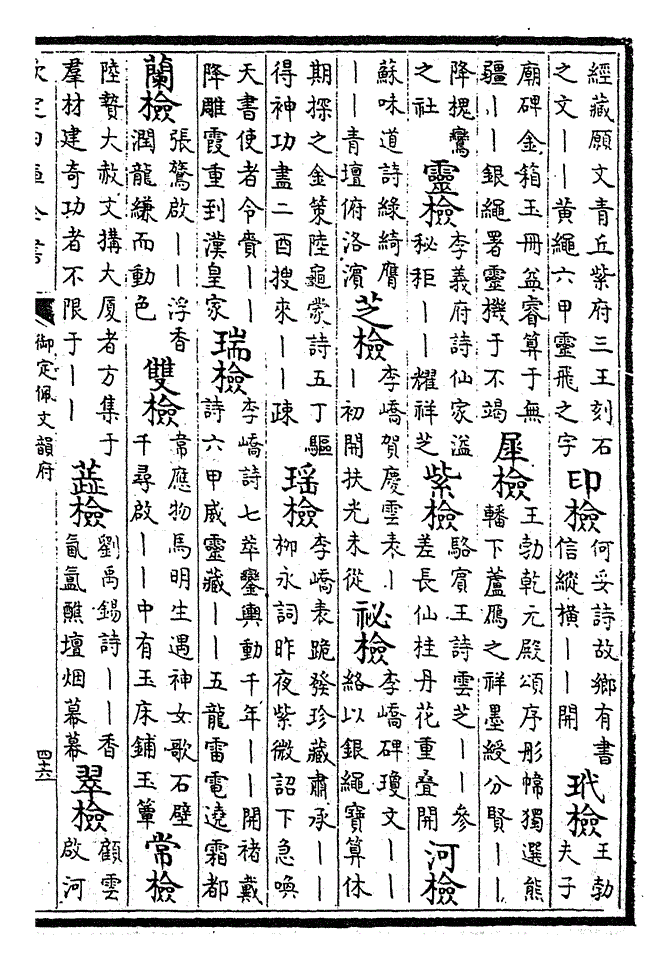 經藏願文青丘紫府三王刻石
之文丨丨黃繩六甲靈飛之字
印檢
何妥詩故鄉有書
信縱橫丨丨開
玳檢
王勃
夫子
廟碑金箱玉冊益睿算于無
疆丨丨銀繩署靈機于不竭
犀檢
王勃乾元殿頌序彤幃獨選熊
轓下蘆雁之祥墨綬分賢丨丨
降槐鸞
之社
靈檢
李義府詩仙家溢
秘秬丨丨耀祥芝
紫檢
駱賓王詩雲芝丨丨參
差長仙桂丹花重疊開
河檢
蘇味道詩綠綺膺
丨丨青壇俯洛濱
芝檢
李嶠賀慶雲表丨
丨初開扶光未從
祕檢
李嶠碑瓊文丨丨
絡以銀繩寶算休
期探之金策陸龜蒙詩五丁驅
得神功盡二酉搜來丨丨疎
瑶檢
李嶠表跪發珍藏肅承丨丨
柳永詞昨夜紫微詔下急喚
天書使者令賫丨丨
降雕霞重到漢皇家
瑞檢
李嶠詩七萃鑾輿動千年丨丨開褚載
詩六甲威靈藏丨丨五龍雷電遶霜都
蘭檢
張鷟啟丨丨浮香
潤龍縑而動色
雙檢
韋應物馬明生遇神女歌石壁
千尋啟丨丨中有玉床鋪玉簟
常檢
陸贄大赦文搆大厦者方集于
羣材建奇功者不限于丨丨
蕋檢
劉禹錫詩丨丨香
氤氲醮壇烟幕幕
翠檢
顧雲
啟河
欽定四庫全書
御定佩文韻府
四十六